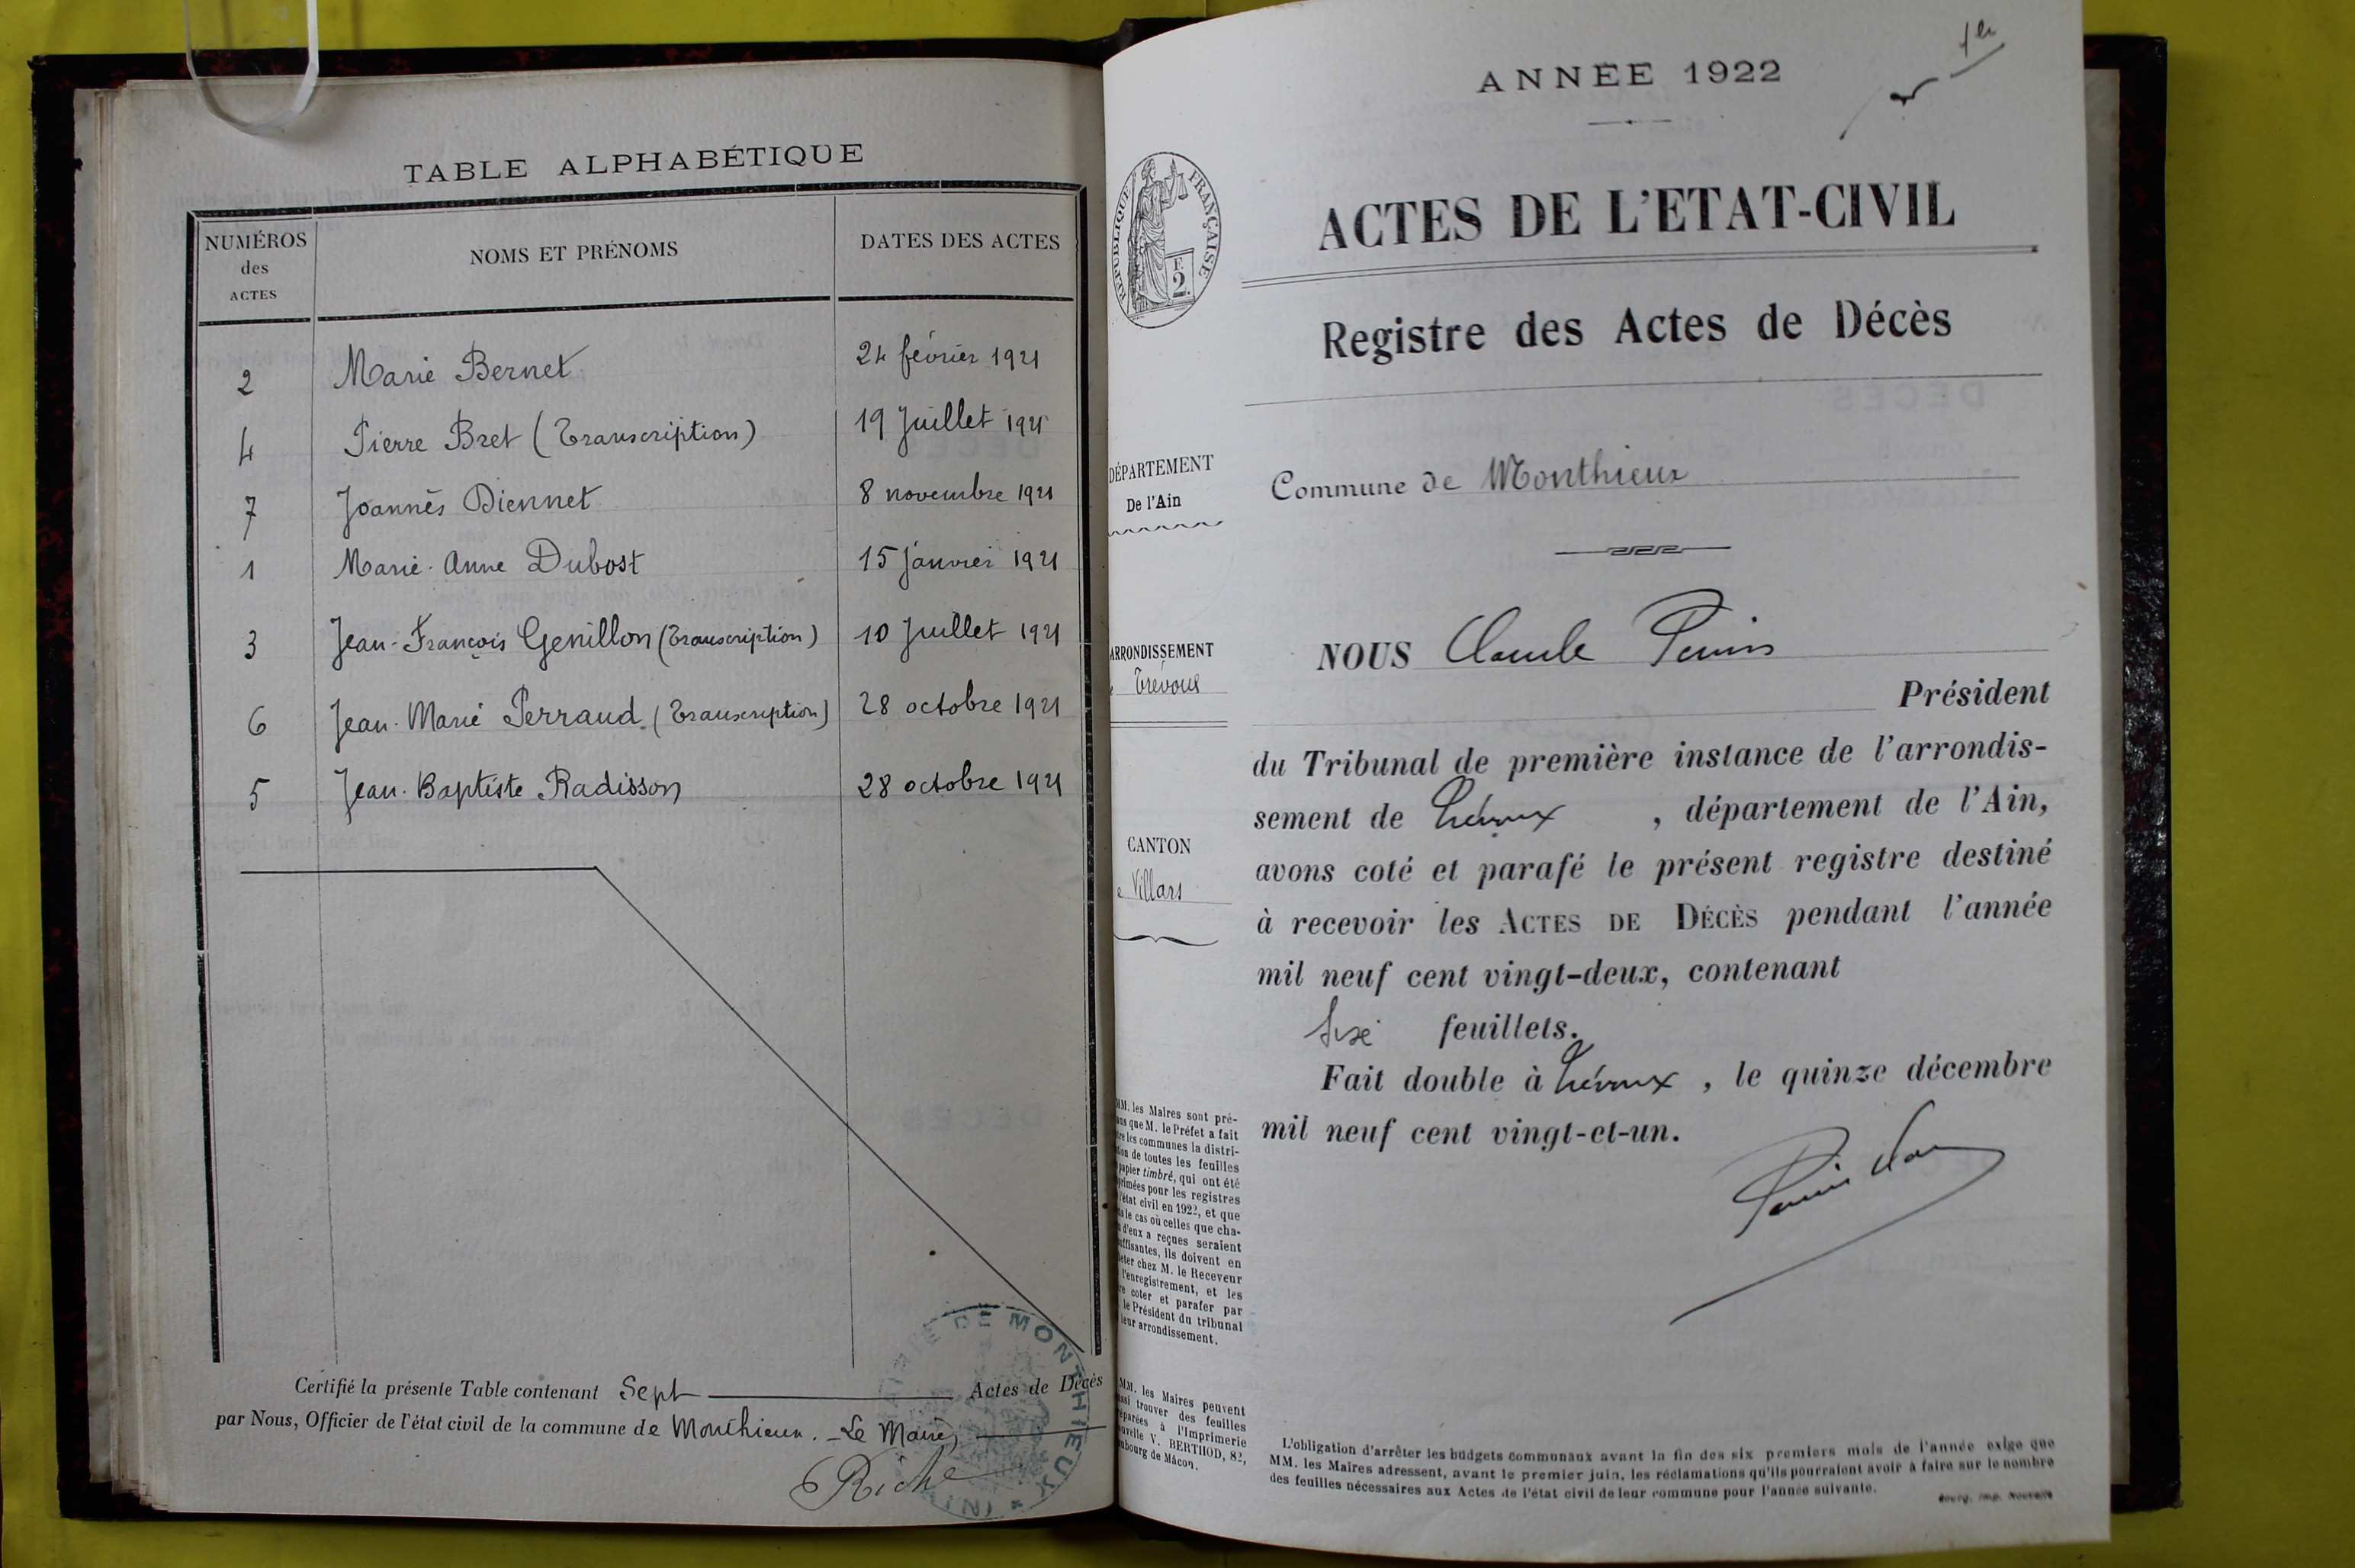 TABLE ALPHABÉTIQUE
NUMÉROS
des
ACTES
NOMS ET PRÉNOMS
DATES DES ACTES
2 Marie Bernet 24 février 1921
4 Pierre Bret (Transcription) 19 Juillet 1921
7 Joannès Diennet 8 novembre 1921
1 Marie-Anne Dubost 15 janvier 1921
3 Jean-François Genillon (Transcription) 10 Juillet 1921
6 Jean-Marie Perraud (Transcription) 28 octobre 1921
5 Jean-Baptiste Radisson 28 octobre 1921
Certifié la présente Table contenant Sept Actes de Décès
par Nous, Officier de l'état civil de la commune de Monthieux. - Le Maire,
Riche
DE MONTHIEUX
ANNÉE 1922
RÉPUBLIQUE FRANÇAISE
F
2
ACTES DE L'ETAT-CIVIL
Registre des Actes de Décès
DÉPARTEMENT
De l'Ain
Commune de Monthieux
ARRONDISSEMENT
Trévoux
CANTON
Villars
NOUS Claude
Président
du Tribunal de première instance de l'arrondis-
sement de Trévoux, département de l'Ain,
avons coté et parafé le présent registre destiné
à recevoir les ACTES DE DÉCÈS pendant l'année
mil neuf cent vingt-deux, contenant
feuillets.
Fait double à Trévoux, le quinze décembre
mil neuf cent vingt-et-un.
MM. les Maires sont pré-
que M. le Préfet a fait
les communes la distri-
de toutes les feuilles
papier timbré, qui ont été
pour les registres
l'état civil en 1922, et que
le cas où celles que cha-
d'eux a reçues seraient
ils doivent en
chez M. le Receveur
l'enregistrement, et les
coter et parafer par
le Président du tribunal
leur arrondissement.
MM. les Maires peuvent
trouver des feuilles
à l'Imprimerie
V. BERTHOD, 82,
de Mâcon.
L'obligation d'arrêter les budgets communaux avant la fin des six premiers mois de l'année exige que
MM. les Maires adressent, avant le premier juin, les réclamations qu'ils pourraient avoir à faire sur le nombre
des feuilles nécessaires aux Actes de l'état civil de leur commune pour l'année suivante.
Bourg, Imp. Nouvelle